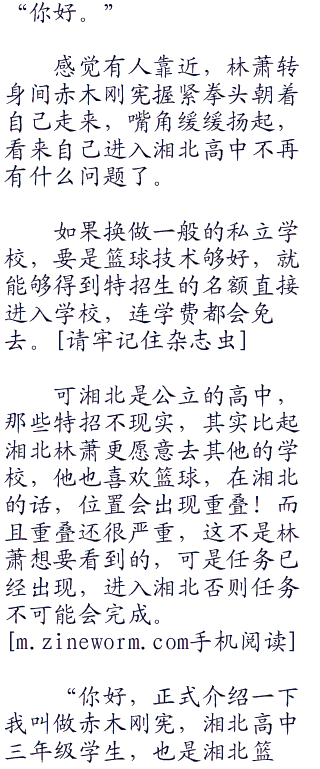 “你好。”
感觉有人靠近，林萧转
身间赤木刚宪握紧拳头朝着
自己走来，嘴角缓缓扬起，
看来自己进入湘北高中不再
有什么问题了。
如果换做一般的私立学
校，要是篮球技术够好，就
能够得到特招生的名额直接
进入学校，连学费都会免
去。[请牢记住杂志虫]
可湘北是公立的高中，
那些特招不现实，其实比起
湘北林萧更愿意去其他的学
校，他也喜欢篮球，在湘北
的话，位置会出现重叠！而
且重叠还很严重，这不是林
萧想要看到的，可是任务已
经出现，进入湘北否则任务
不可能会完成。
[m.zineworm.com手机阅读]
“你好，正式介绍一下
我叫做赤木刚宪，湘北高中
三年级学生，也是湘北篮